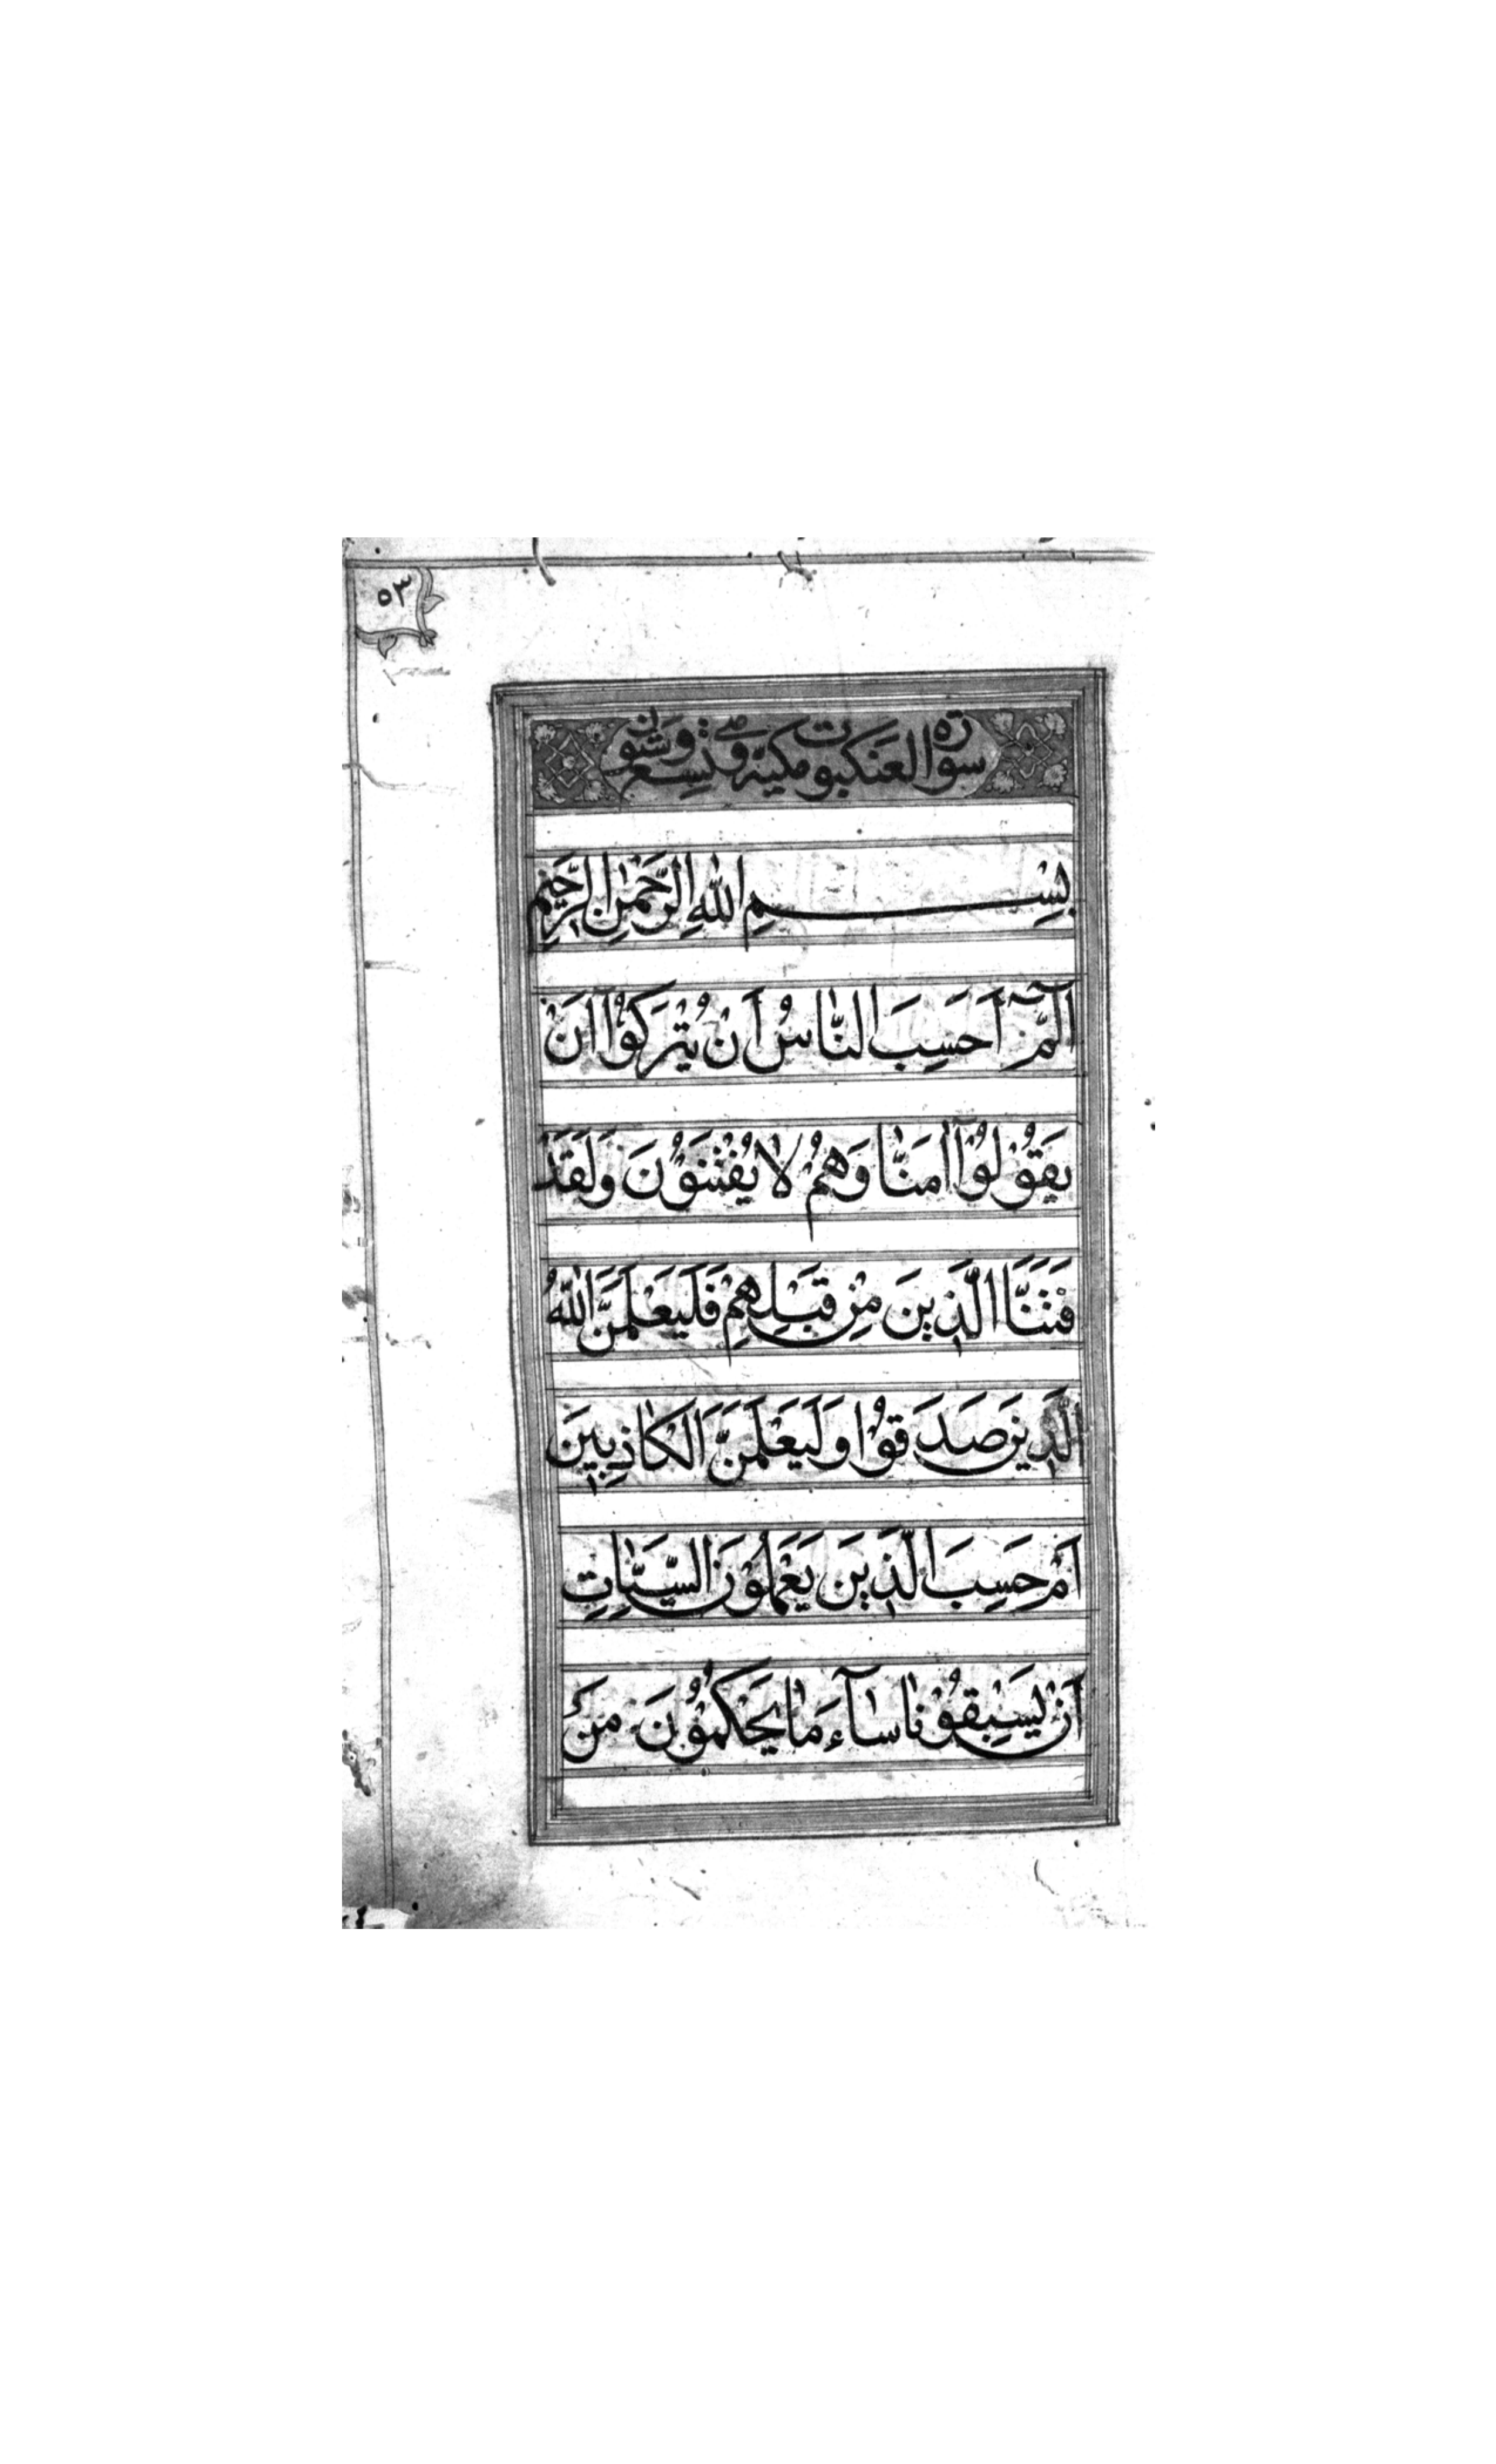 ٥٣
سورة العنكبوت مكية وهي تسع وستون
بِسْمِ اللّٰهِ الرَّحْمٰنِ الرَّحِيمِ
الٓمّٓ اَحَسِبَ النَّاسُ اَنْ يُتْرَكُوْٓا اَنْ
يَقُوْلُوْٓا اٰمَنَّا وَهُمْ لَا يُفْتَنُوْنَ وَلَقَدْ
فَتَنَّا الَّذِينَ مِنْ قَبْلِهِمْ فَلَيَعْلَمَنَّ اللّٰهُ
الَّذِينَ صَدَقُوْا وَلَيَعْلَمَنَّ الْكَاذِبِينَ
اَمْ حَسِبَ الَّذِينَ يَعْمَلُوْنَ السَّيِّاٰتِ
اَنْ يَسْبِقُوْنَا سَآءَ مَا يَحْكُمُوْنَ مَنْ